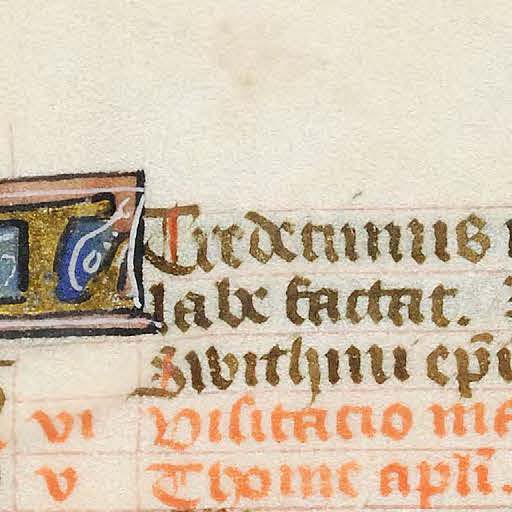 Tredecimus
labe factat.
Swithuni ep̄i
vi Visitacio ma
v Thome apl̄i.